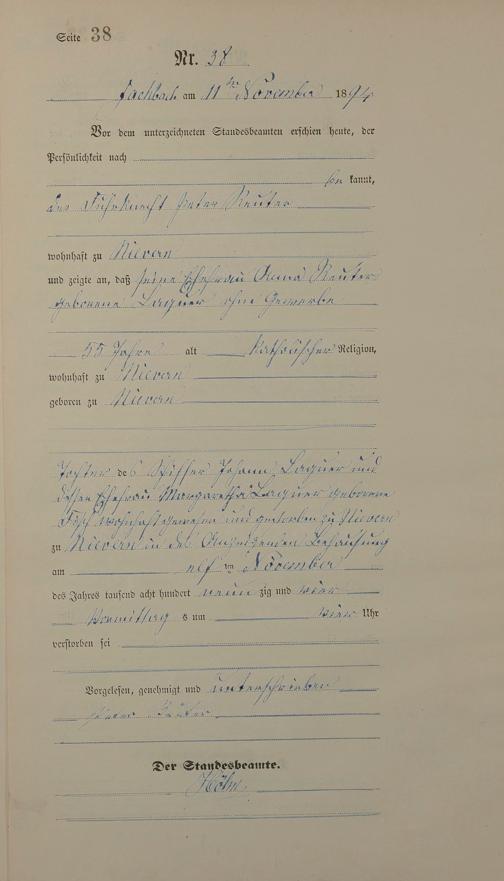 Seite 38
Nr. 38
Fachbach am 11ten November 1894
Vor dem unterzeichneten Standesbeamten erschien heute, der
Persönlichkeit nach
be kannt,
der Peter Reuter
wohnhaft zu Nievern
und zeigte an, daß seine Ehefrau Anna Reuter
geborene Laquer ohne Gewerbe
55 Jahre alt katholischer Religion,
wohnhaft zu Nievern
geboren zu Nievern
Tochter des Schiffer Johann Laquer und
dessen Ehefrau Margaretha Laquer geborene
wohnhaft gewesene und gestorben zu Nievern
zu Nievern in des Anzeigenden Behausung
am elften November
des Jahres tausend acht hundert neun zig und vier
Vormittag s um vier Uhr
verstorben sei
Vorgelesen, genehmigt und unterschrieben
Peter
Der Standesbeamte.